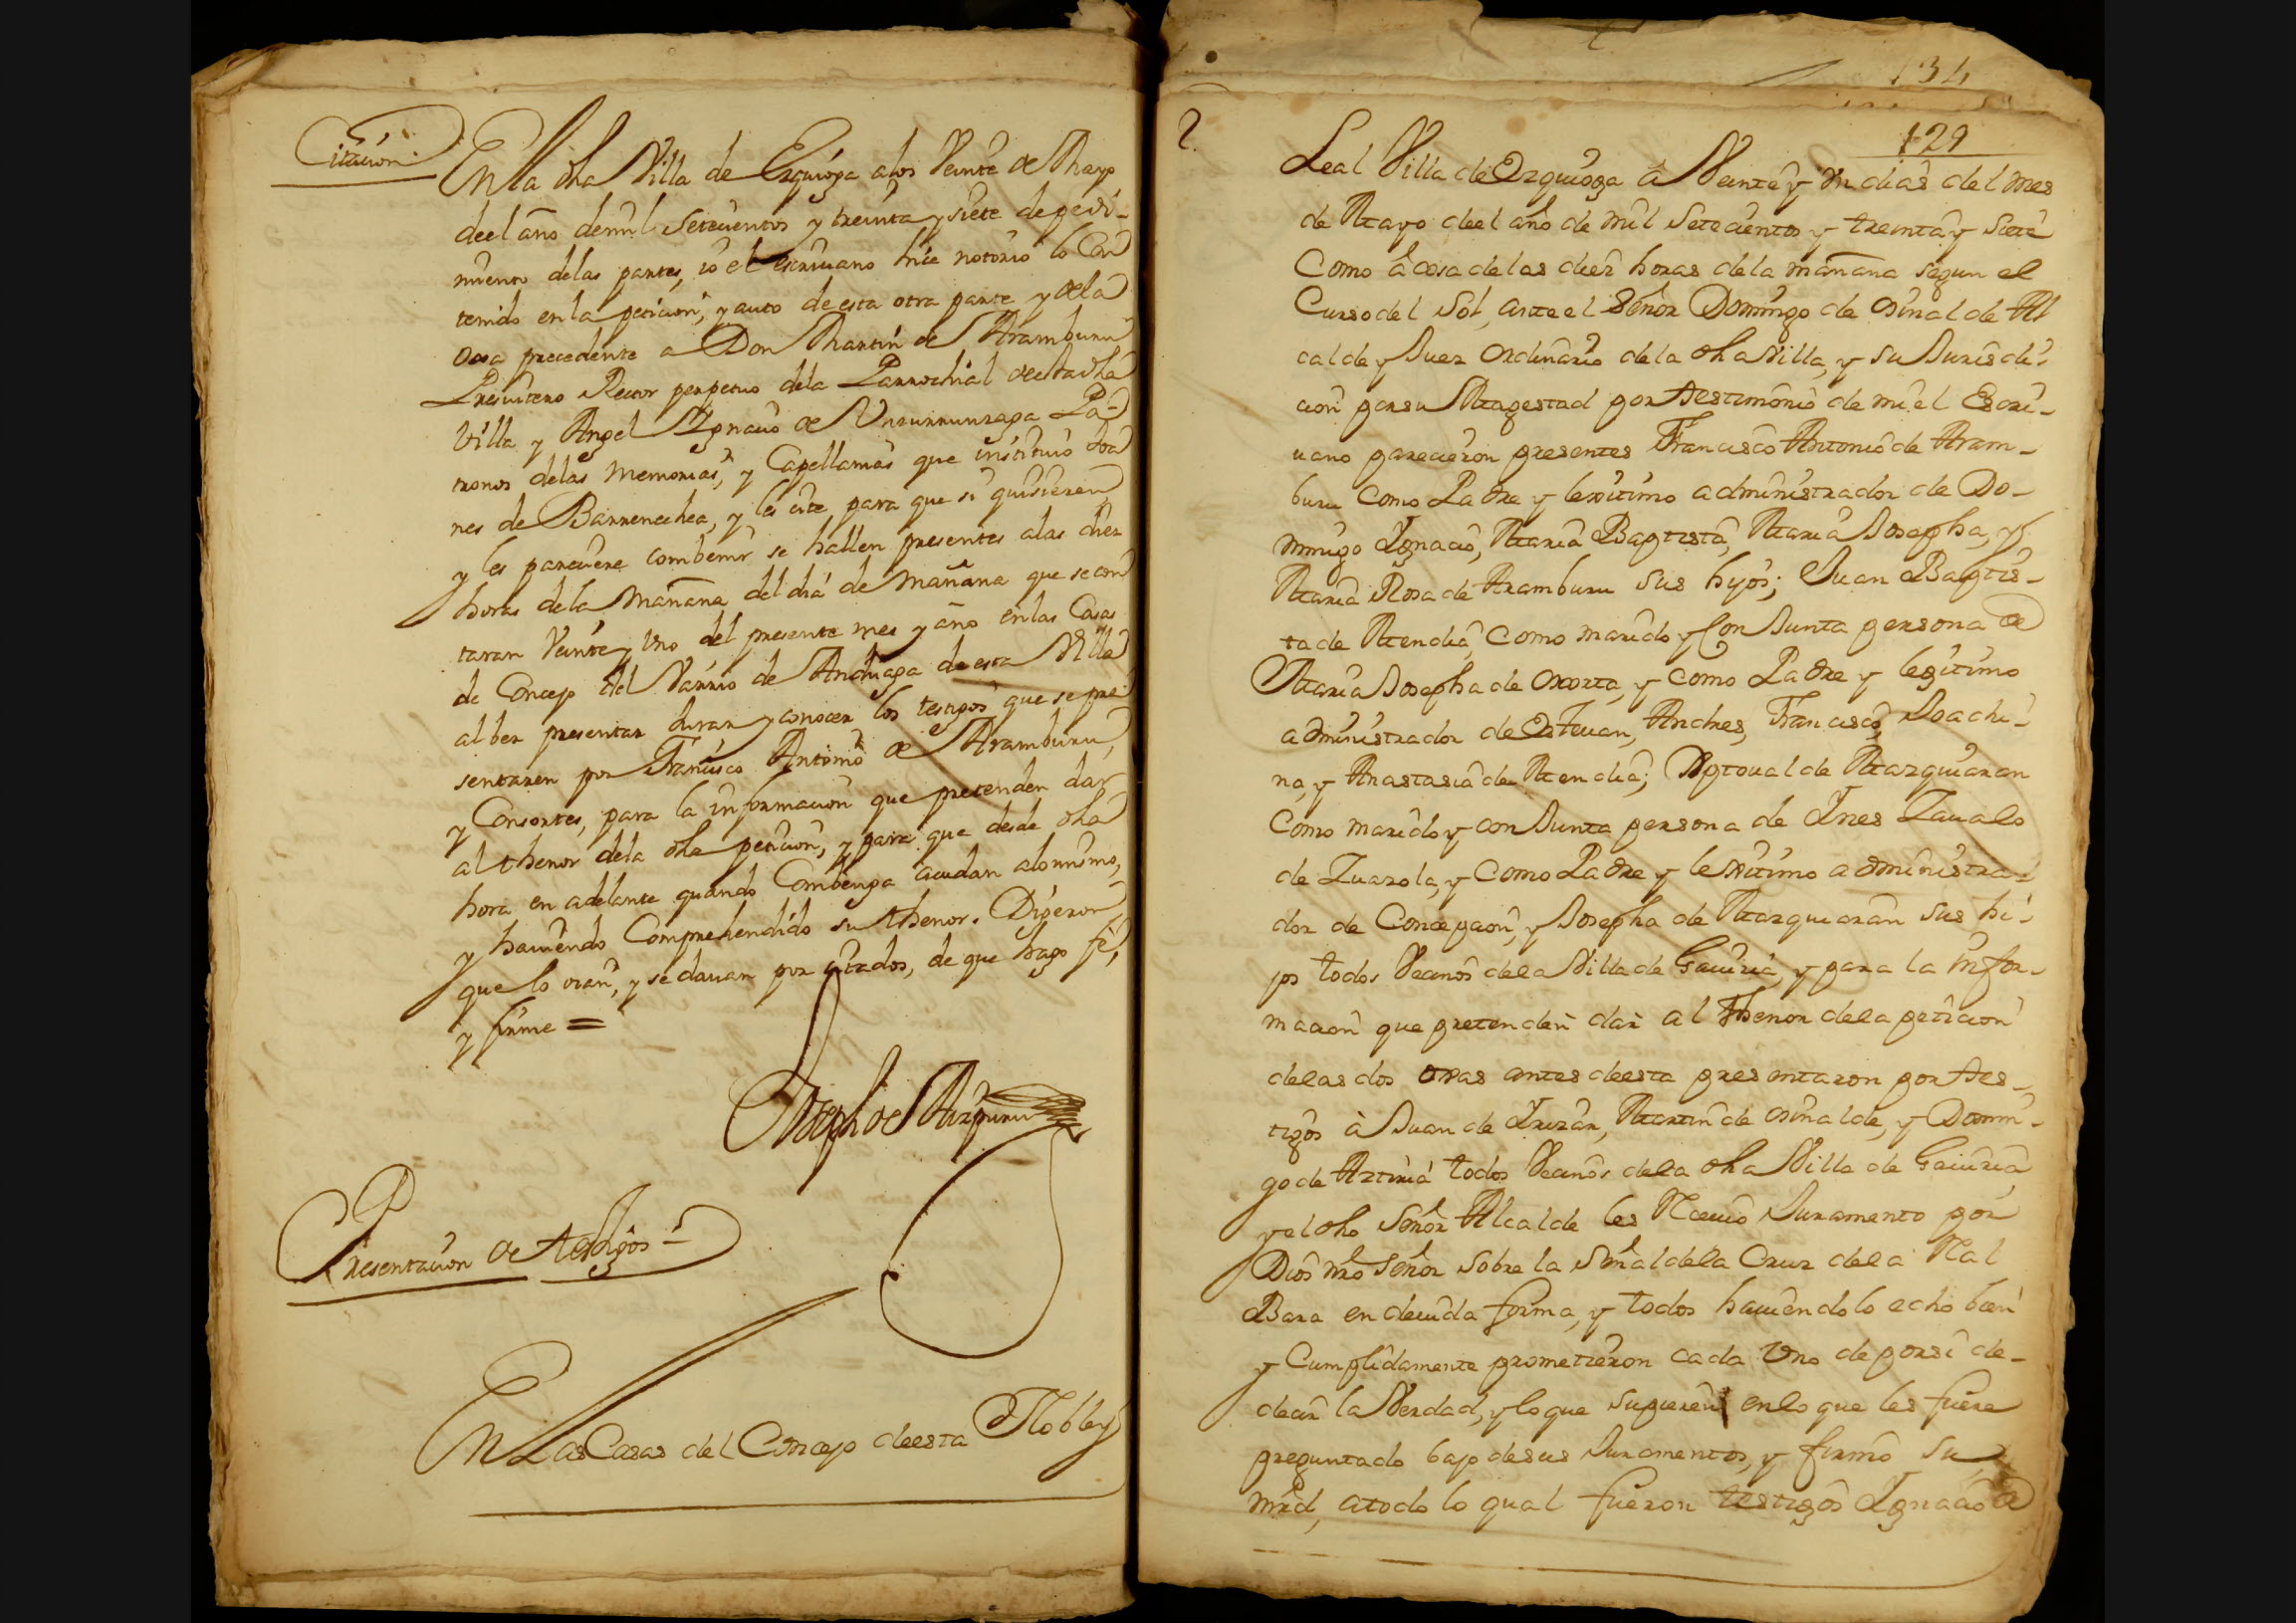 Citacion
En la dha Villa de Ezquioga a los Veinte de Mayo
de el año de mil Setecientos y treinta y siete de pedi-
miento de las partes, io el escriuano hice notorio lo Con
tenido en la peticion, y auto de esta otra parte y de la
oxa precedente a Don Martin de Aramburu
Presuitero Rector perpetuo de la Parrochial de esta dha
Villa y Angel Ygnacio de Unsurrunzaga Pa-
tronos de las Memorias, y Capellanias que instituió
nes de Barrenechea, y les cite para que si quisieren,
y les pareciere combenir se hallen presentes a las diez
horas de la Mañana del dia de mañana que se con
taran Veinte y Uno del presente mes y año en las Casas
de Concejo del Varrio de Anduaga de esta Villa
al ber presentar jurar y conocer los testigos que se pre
sentaren por Francisco Antonio de Aramburu,
y Consortes, para la informacion que pretenden dar
al thenor de la dha peticion, y para que desde dha
hora en adelante quando Combenga acudan a lo mismo,
y hauiendo Comprehendido su thenor. Digeron
que lo oian, y se dauan por citados, de que hago fe,
y firme =
Joseph de Aizpuru
Presentacion de testigos
En Las Casas del Concejo de esta Noble y
134
129
2
Leal Villa de Ezquioga â Veinte y Un dias del mes
de Mayo de el año de mil Setecientos y treinta y Siete
Como â cosa de las diez horas de la mañana segun el
Curso del Sol, ante el Señor Domingo de Osinalde Al
calde y Juez Ordinario de la dha Villa, y su Jurisdi-
cion por su Magestad por testimonio de mi el Escri-
uano parecieron presentes Francisco Antonio de Aram-
buru Como Padre y lexitimo administrador de Do-
mingo Ignacio, Maria Baptista, Maria Josepha, y
Maria Rosa de Aramburu sus hijos; Juan Baptis-
ta de Mendia, como marido y Conjunta persona de
Maria Josepha de Oxorta, y como Padre y legitimo
administrador de Esteuan, Andres, Francisco, Joachi-
na, y Anastasia de Mendia; Xptoual de Mazquiaran
Como marido y conjunta persona de Ines
de Zuazola, y Como Padre y lexitimo administra-
dor de Concepcion, y Josepha de Mazquiaran sus hi-
jos todos Vecinos de la Villa de Gauiria, y para la infor-
macion que pretenden dar al thenor de la peticion
de las dos oxas antes de esta presentaron por tes-
tigos à Juan de Irizar, Martin de Osinalde, y Domin-
go de Aztiria todos Vecinos de la dha Villa de Gauiria
y el dho Señor Alcalde les Reciuio Juramento por
Dios nro Señor sobre la Señal de la Cruz de la Real
Bara en deuida forma, y todos hauiendolo echo bien
y Cumplidamente prometieron cada Uno de por si de-
decir la Verdad, y lo que supieren en lo que les fuere
preguntado bajo de sus Juramentos, y firmò Su
mrd, a todo lo qual fueron testigos Ignacio de